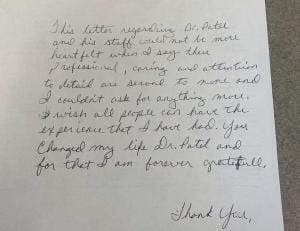 This letter regarding Dr. Patel
and his staff could not be more
heartfelt when I say there
professional, caring and attention
to detail are second to none and
I couldn't ask for anything more.
I wish all people can have the
experience that I have had. You
changed my life Dr. Patel and
for that I am forever gratefull.
Thank You,